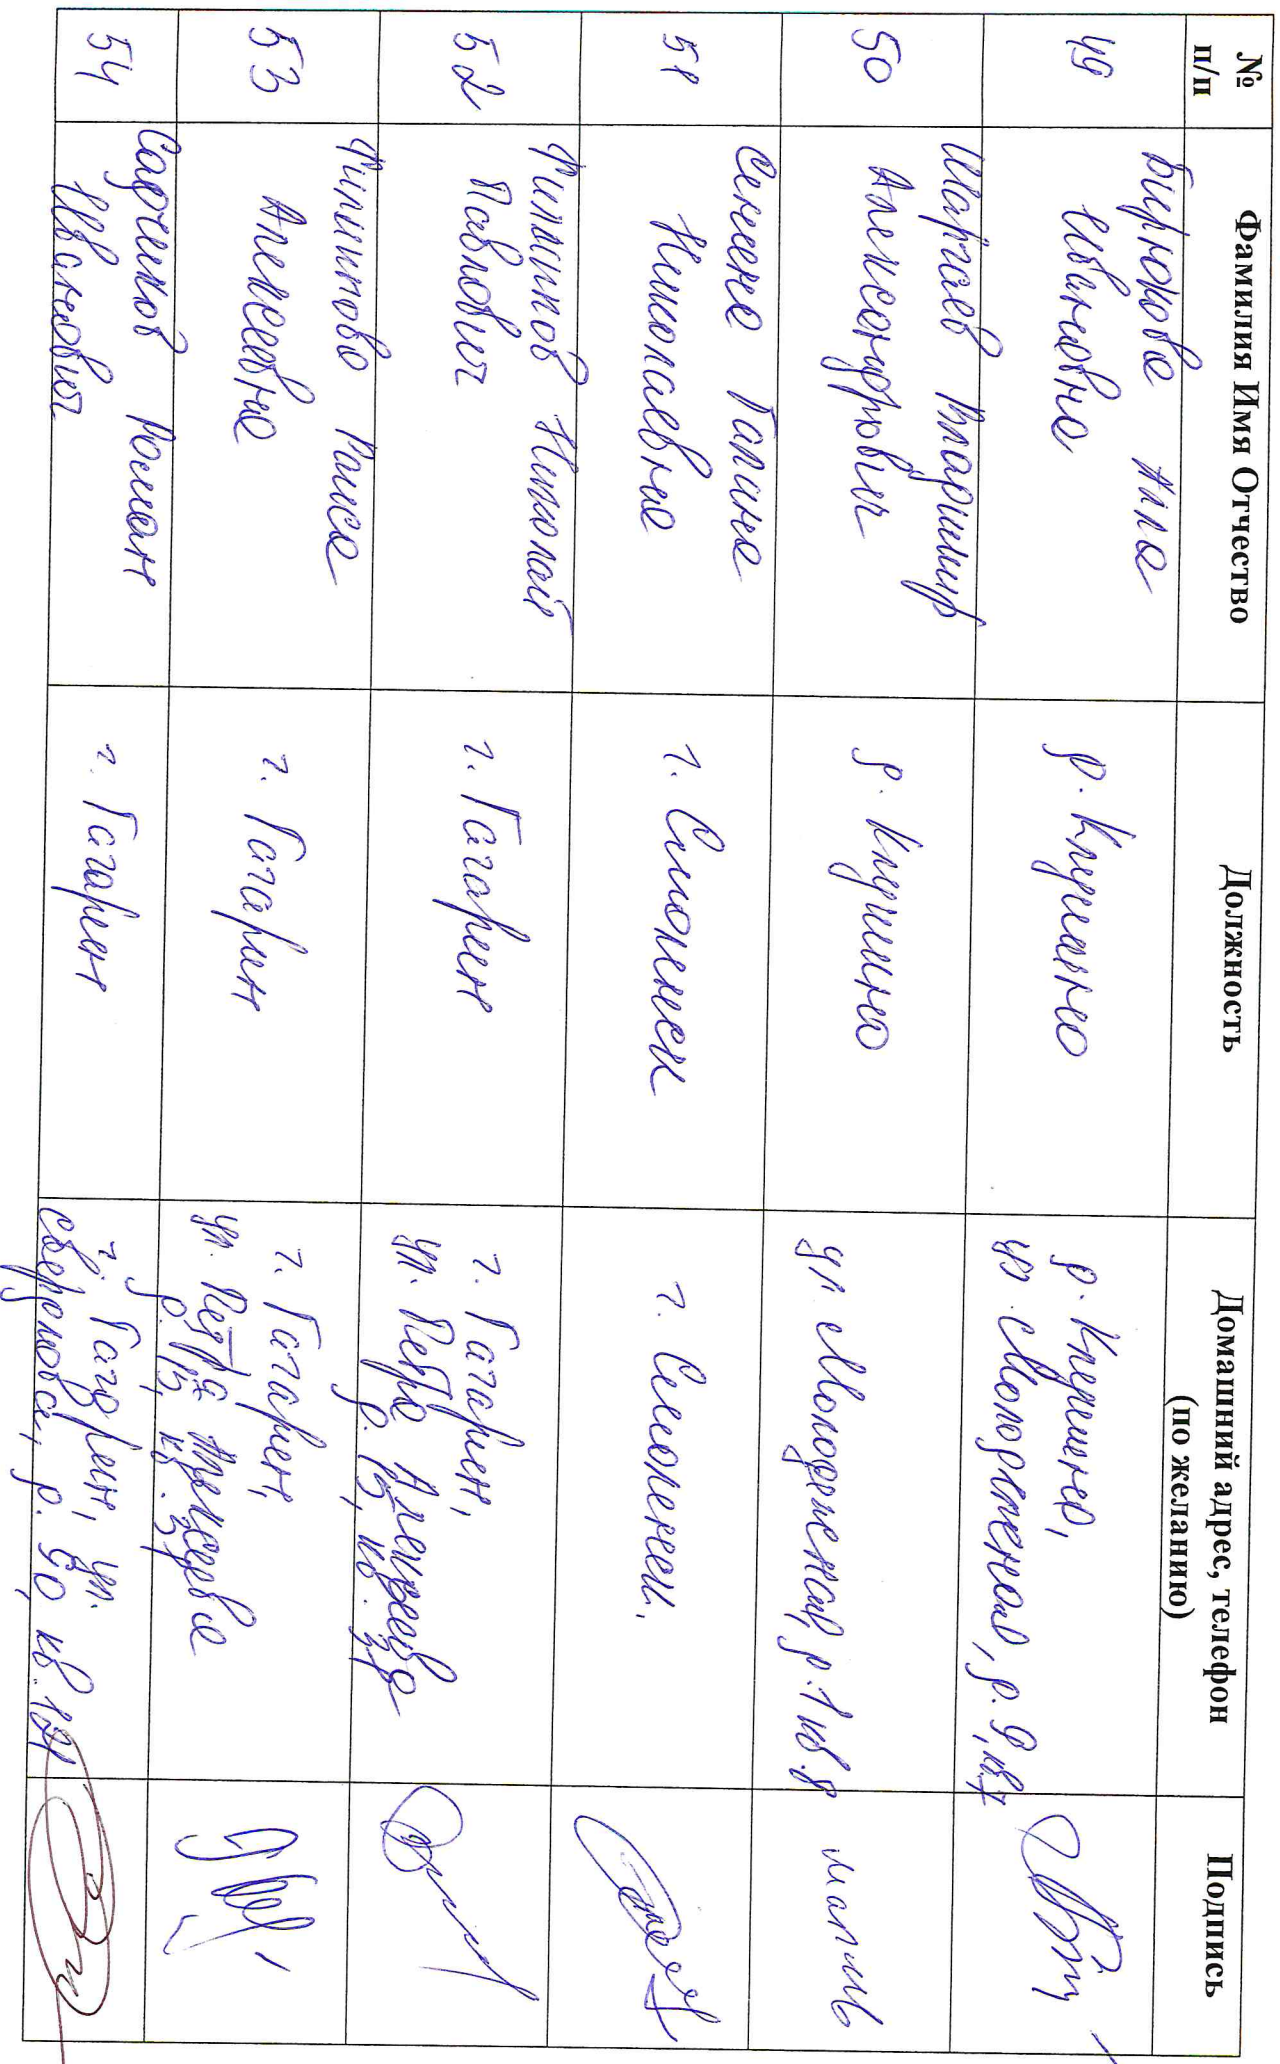 № п/п
Фамилия Имя Отчество
Должность
Домашний адрес, телефон (по желанию)
Подпись
49
Бирюкова Алла
Ивановна
д. Клушино
д. Клушино,
ул. Молодежная, д. 9, кв. 7
50
Шаргаев Владимир
Александрович
д. Клушино
ул. Молодежная, д. 1 кв. 8
51
Сенина Галина
Николаевна
г. Смоленск
г. Смоленск.
52
Филиппов Николай
Павлович
г. Гагарин
г. Гагарин,
ул. Петра Алексеева
д. 13, кв.
53
Филиппова Раиса
Алексеевна
г. Гагарин
г. Гагарин,
ул. Петра Алексеева
д. 13, кв.
54
Садчиков Роман
Иванович
г. Гагарин
г. Гагарин, ул.
Свердлова, д. кв.